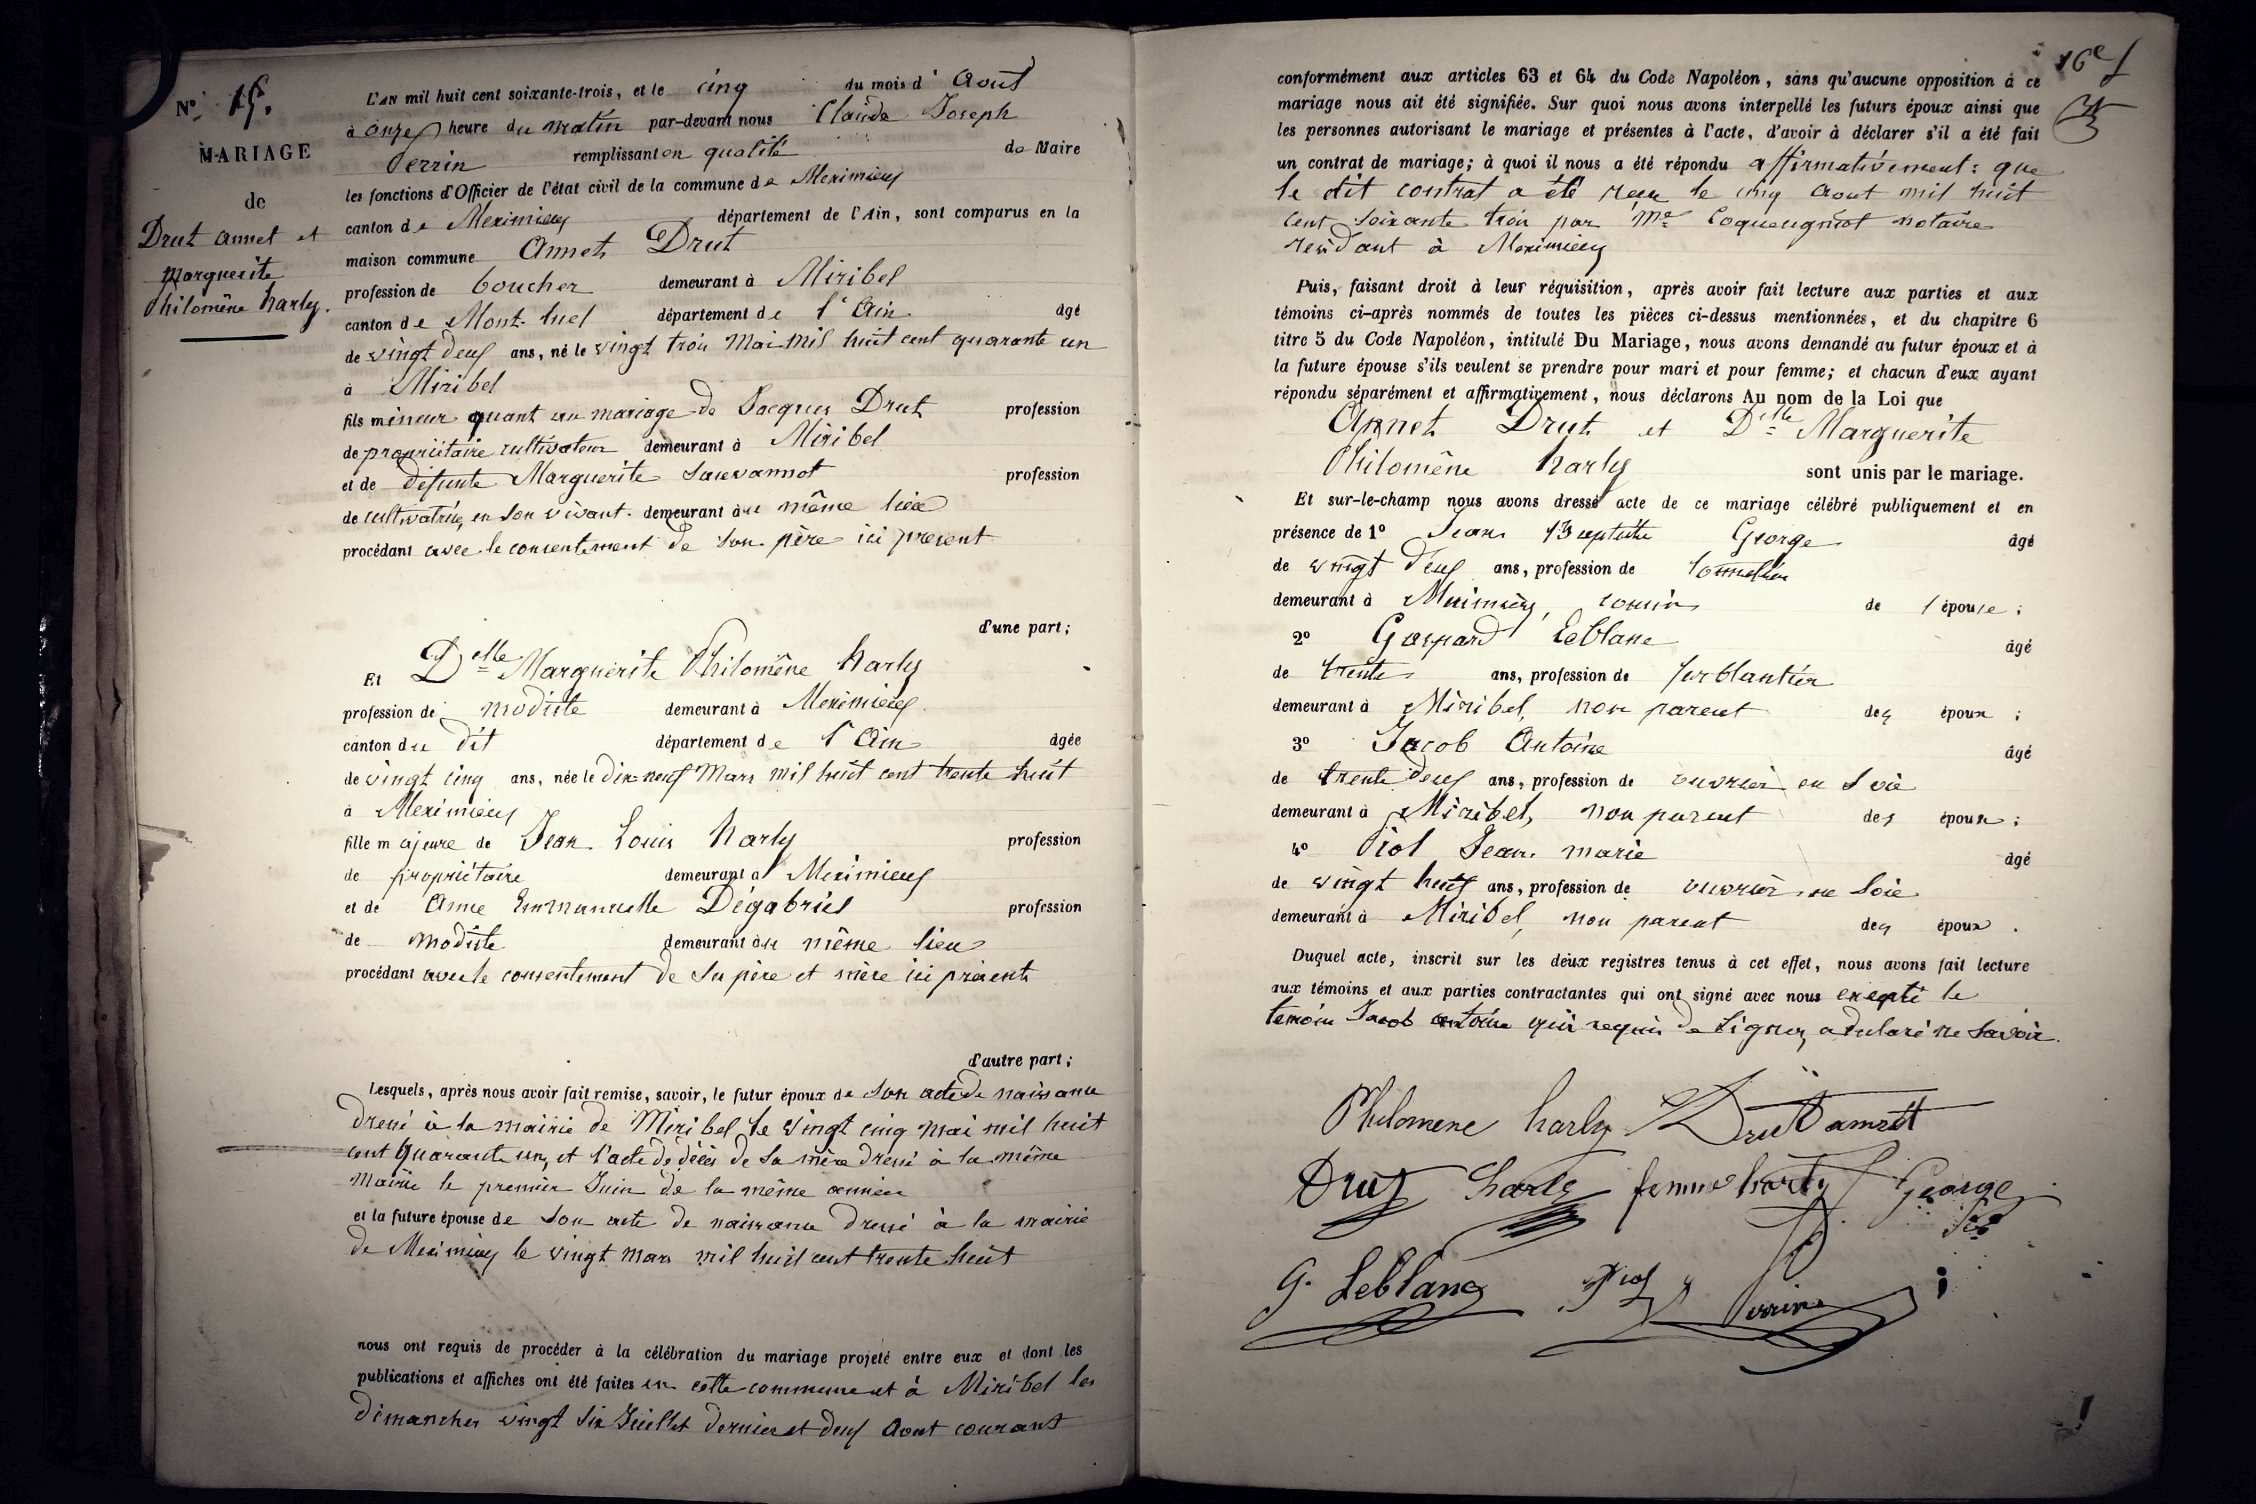 N° 15.
MARIAGE
de
Drut annet et
Marguerite
Philomène harly.
L'AN mil huit cent soixante-trois, et le cinq du mois d'Aout
à onze heure du matin par-devant nous Claude Joseph
Perrin remplissant en qualité de Maire
les fonctions d'Officier de l'état civil de la commune de Meximieux
canton de Meximieux département de l'Ain, sont comparus en la
maison commune Annet Drut
profession de boucher demeurant à Miribel
canton de Mont-luel département de l'Ain âgé
de vingt deux ans, né le vingt trois Mai Mil huit cent quarante un
à Miribel
fils mineur quant au mariage de Jacques Drut profession
de propriétaire cultivateur demeurant à Miribel
et de défunte Marguerite Sauvannot profession
de cultivatrice, en son vivant demeurant au même lieu
procédant avec le consentement de son père ici present
d'une part;
Et Delle Marguerite Philomène harly
profession de modiste demeurant à Meximieux
canton du dit département de l'Ain âgée
de vingt cinq ans, née le dix-neuf Mars mil huit cent trente huit
à Meximieux
fille majeure de Jean Louis harly profession
de propriétaire demeurant à Meximieux
et de Anne Emmanuelle Dégabriel profession
de modiste demeurant au même lieu
procédant avec le consentement de ses père et mère ici présents
d'autre part;
Lesquels, après nous avoir fait remise, savoir, le futur époux de son acte de naissance
dressé à la mairie de Miribel le vingt cinq mai mil huit
cent quarante un, et l'acte de décès de sa mère dressé à la même
Mairie le premier Juin de la même année
et la future épouse de son acte de naissance dressé à la mairie
de Meximieux le vingt Mars mil huit cent trente huit
nous ont requis de procéder à la célébration du mariage projeté entre eux et dont les
publications et affiches ont été faites en cette commune et à Miribel les
dimanches vingt six Juillet dernier et deux Aout courant
16e
conformément aux articles 63 et 64 du Code Napoléon, sans qu'aucune opposition à ce
mariage nous ait été signifiée. Sur quoi nous avons interpellé les futurs époux ainsi que
les personnes autorisant le mariage et présentes à l'acte, d'avoir à déclarer s'il a été fait
un contrat de mariage; à quoi il nous a été répondu affirmativement: que
le dit contrat a été reçu le cinq Aout mil huit
cent soixante trois par Me Coqueugniot notaire
residant à Meximieux
Puis, faisant droit à leur réquisition, après avoir fait lecture aux parties et aux
témoins ci-après nommés de toutes les pièces ci-dessus mentionnées, et du chapitre 6
titre 5 du Code Napoléon, intitulé Du Mariage, nous avons demandé au futur époux et à
la future épouse s'ils veulent se prendre pour mari et pour femme; et chacun d'eux ayant
répondu séparément et affirmativement, nous déclarons Au nom de la Loi que
Annet Drut et Delle Marguerite
Philomène harly sont unis par le mariage.
Et sur-le-champ nous avons dressé acte de ce mariage célébré publiquement et en
présence de 1° Jean Baptiste George âgé
de vingt deux ans, profession de
demeurant à Meximieux, cousin de l'épouse;
2° Gaspard Leblanc âgé
de trente ans, profession de ferblantier
demeurant à Miribel, non parent des époux;
3° Jacob Antoine âgé
de trente deux ans, profession de ouvrier en soie
demeurant à Miribel, non parent des époux;
4° Piol Jean marie âgé
de vingt huit ans, profession de ouvrier en soie
demeurant à Miribel, non parent des époux.
Duquel acte, inscrit sur les deux registres tenus à cet effet, nous avons fait lecture
aux témoins et aux parties contractantes qui ont signé avec nous excepté le
temoin Jacob antoine qui requis de signer a declaré ne savoir.
Philomene harly Drut annett
Drut harly femme harly George
G. Leblanc Piol Perrin